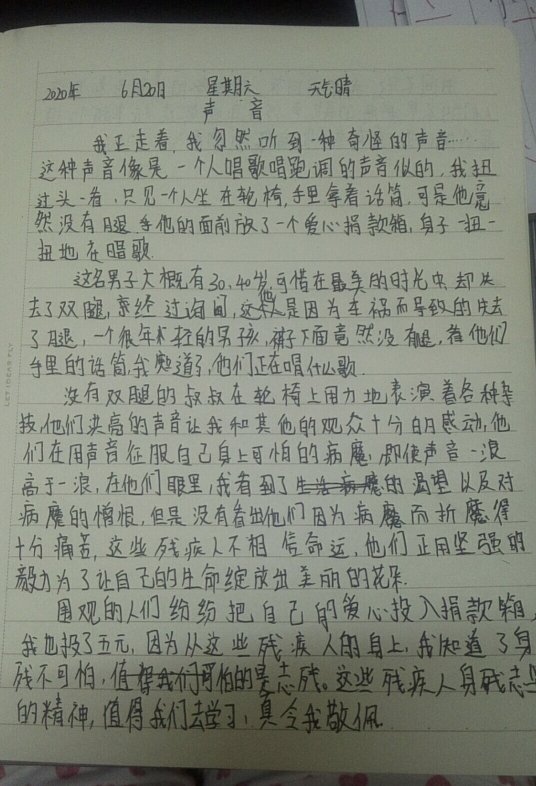 2020年 6月20日 星期六 天气晴
声音
我正走着，我忽然听到一种奇怪的声音……
这种声音像是一个人唱歌唱跑调的声音似的，我扭
过头一看，只见一个人坐在轮椅，手里拿着话筒，可是他竟
然没有腿，在他的面前放了一个爱心捐款箱，身子一扭一
扭地在唱歌.
这名男子大概有30,40岁,可惜在最美的时光中却失
去了双腿，经过询问，这他是因为车祸而导致的失去
了腿，一个很年轻的男孩，裤子下面竟然没有腿，看他们
手里的话筒，我知道了，他们正在唱什么歌.
没有双腿的叔叔在轮椅上用力地表演着各种杂
技，他们洪亮的声音让我和其他的观众十分的感动，他
们在用声音征服自己身上可怕的病魔，即使声音一浪
高于一浪，在他们眼里，我看到了生活的渴望以及对
病魔的憎恨，但是没有看出他们因为病魔而折魔得
十分痛苦，这些残疾人不相信命运，他们正用坚强的
毅力为了让自己的生命绽放出美丽的花朵.
围观的人们纷纷把自己的爱心投入捐款箱，
我也投了五元，因为从这些残疾人的身上，我知道了身
残不可怕，可怕的是志残。这些残疾人身残志坚
的精神，值得我们去学习，真令我敬佩.
LET IDEAS FLY